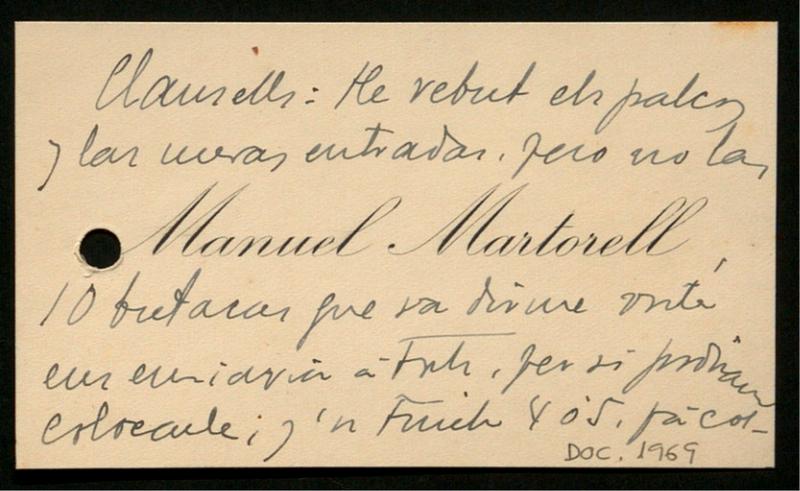 Clausells: He rebut els palcos
y las meras entradas, pero no las
Manuel Martorell
10 butacas que va dirme vosté
ens enviaria á per si podiam
colocarle; y 'n 4 ó 5. ja col-
DOC. 1969